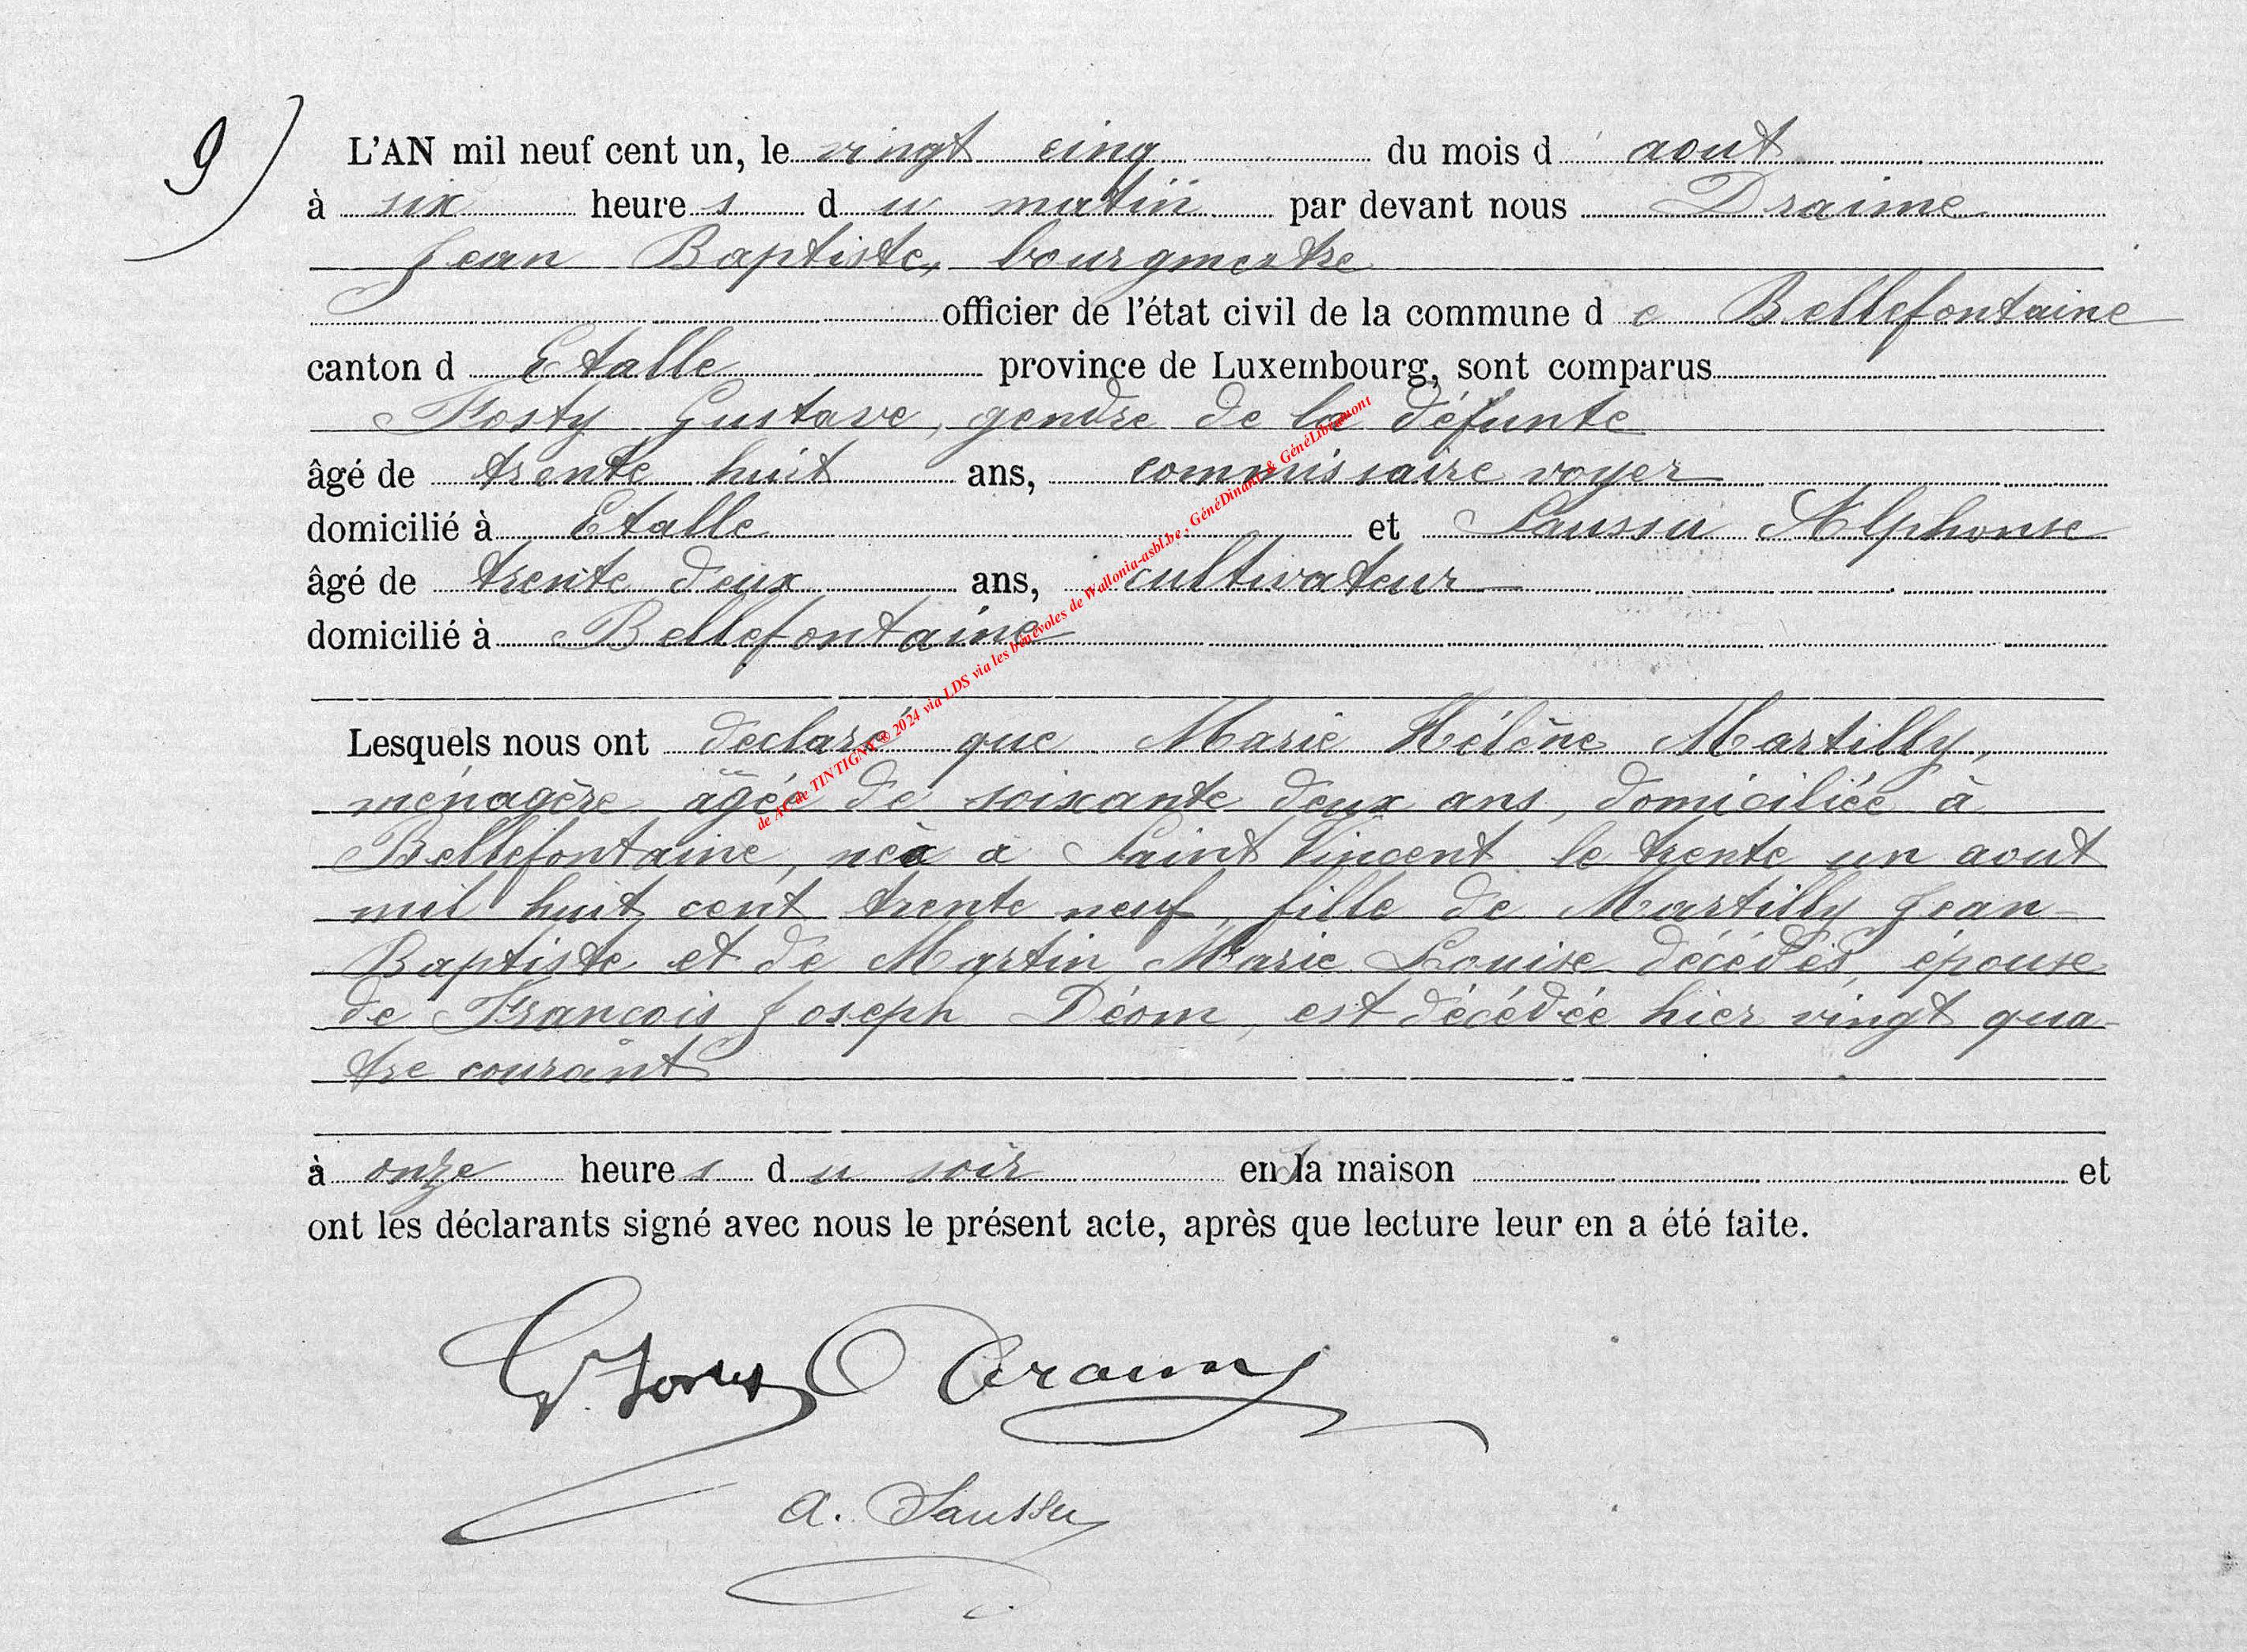 9)
L'AN mil neuf cent un, le vingt cinq du mois d'aout
à six heures du matin par devant nous Draime
Jean Baptiste, bourgmestre
officier de l'état civil de la commune de Bellefontaine
canton d Etalle province de Luxembourg, sont comparus
Fosty Gustave, gendre de la défunte
âgé de trente huit ans, commissaire voyer
domicilié à Etalle et Saussu Alphonse
âgé de trente deux ans, cultivateur
domicilié à Bellefontaine
Lesquels nous ont declaré que Marie Hélène Martilly,
ménagère âgée de soixante deux ans, domiciliée à
Bellefontaine, née à Saint Vincent le trente un aout
mil huit cent trente neuf, fille de Martilly Jean-
Baptiste et de Martin Marie Louise décédés, épouse
de Francois Joseph Déom, est décédée hier vingt qua-
tre courant
à onze heures du soir en sa maison et
ont les déclarants signé avec nous le présent acte, après que lecture leur en a été faite.
G. Fosty Draime
A. Saussu
de AC de TINTIGNY © 2024 via LDS via les bénévoles de Wallonia-asbl.be, GénéDinant & GénéLibramont